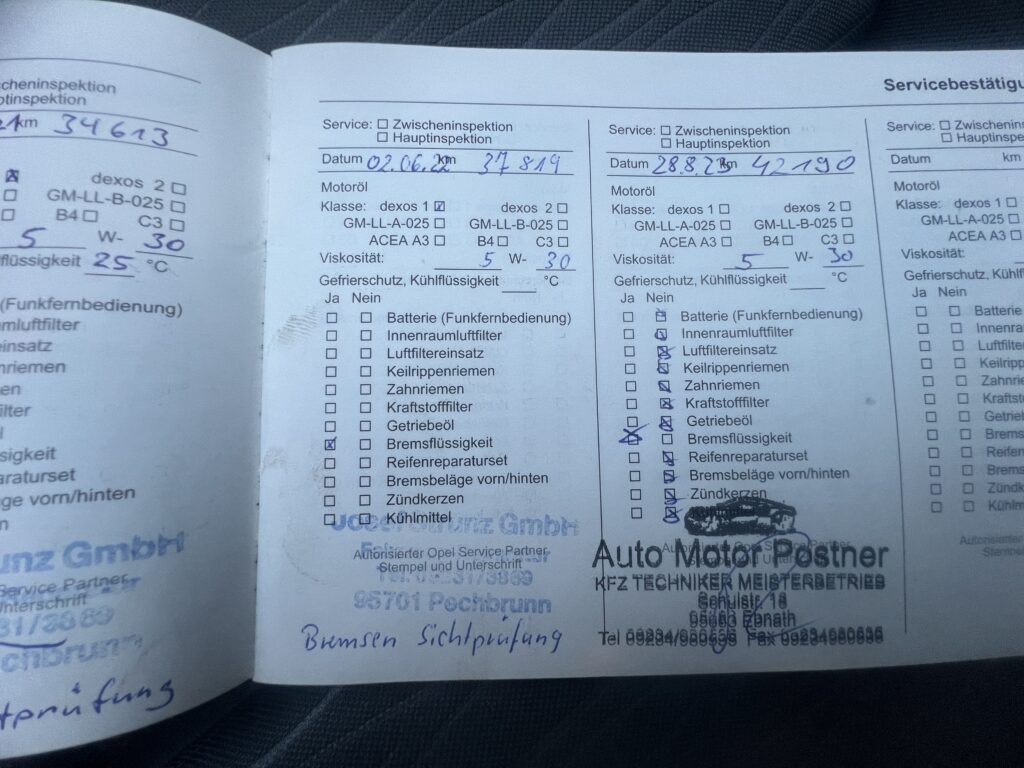 scheninspektion
ptinspektion
km 34613
dexos 2
GM-LL-B-025
B4 C3
5 W- 30
flüssigkeit 25 °C
(Funkfernbedienung)
mluftfilter
einsatz
nriemen
en
ilter
l
sigkeit
araturset
äge vorn/hinten
n
unz GmbH
Service Partner
nterschrift
31/3869
echbrunn
tprüfung
Service: Zwischeninspektion
Hauptinspektion
Datum 02.06.22 km 37819
Motoröl
Klasse: dexos 1 dexos 2
GM-LL-A-025 GM-LL-B-025
ACEA A3 B4 C3
Viskosität: 5 W- 30
Gefrierschutz, Kühlflüssigkeit °C
Ja Nein
Batterie (Funkfernbedienung)
Innenraumluftfilter
Luftfiltereinsatz
Keilrippenriemen
Zahnriemen
Kraftstofffilter
Getriebeöl
Bremsflüssigkeit
Reifenreparaturset
Bremsbeläge vorn/hinten
Zündkerzen
Kühlmittel
GmbH
Autorisierter Opel Service Partner
Stempel und Unterschrift
95701 Pechbrunn
Bremsen Sichtprüfung
Servicebestätigu
Service: Zwischeninspektion
Hauptinspektion
Datum 28.8.23 km 42190
Motoröl
Klasse: dexos 1 dexos 2
GM-LL-A-025 GM-LL-B-025
ACEA A3 B4 C3
Viskosität: 5 W- 30
Gefrierschutz, Kühlflüssigkeit °C
Ja Nein
Batterie (Funkfernbedienung)
Innenraumluftfilter
Luftfiltereinsatz
Keilrippenriemen
Zahnriemen
Kraftstofffilter
Getriebeöl
Bremsflüssigkeit
Reifenreparaturset
Bremsbeläge vorn/hinten
Zündkerzen
Auto Motor Postner
KFZ TECHNIKER MEISTERBETRIEB
Schulstr. 18
Ebnath
Tel 09234/980636 Fax 09234980636
Service: Zwischenins
Hauptinspe
Datum km
Motoröl
Klasse: dexos 1
GM-LL-A-025
ACEA A3
Viskosität:
Gefrierschutz, Kühlflüssig
Ja Nein
Batterie
Innenra
Luftfilte
Keilripp
Zahnrie
Kraftst
Getrieb
Brems
Reifen
Brems
Zündk
Kühlm
Autorisierter
Stempel